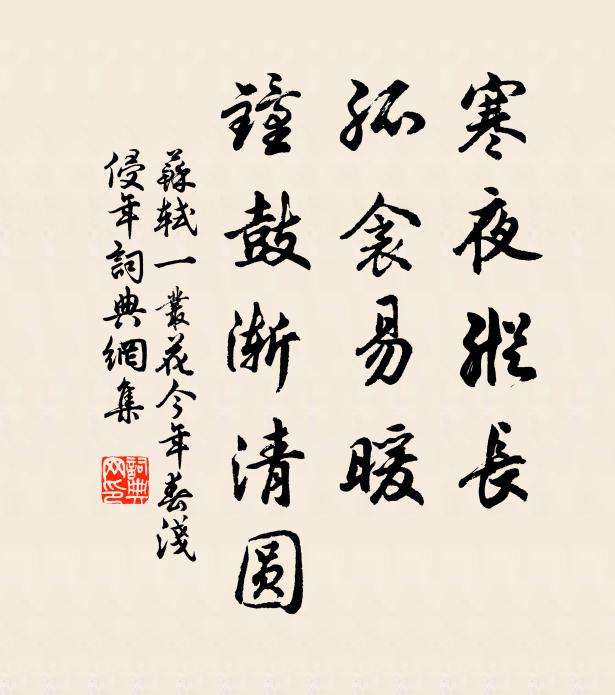 寒夜縱長
孤衾易暖
鐘鼓漸清圆
蘇軾一叢花今年春淺
侵年詞典網集
詞典网印